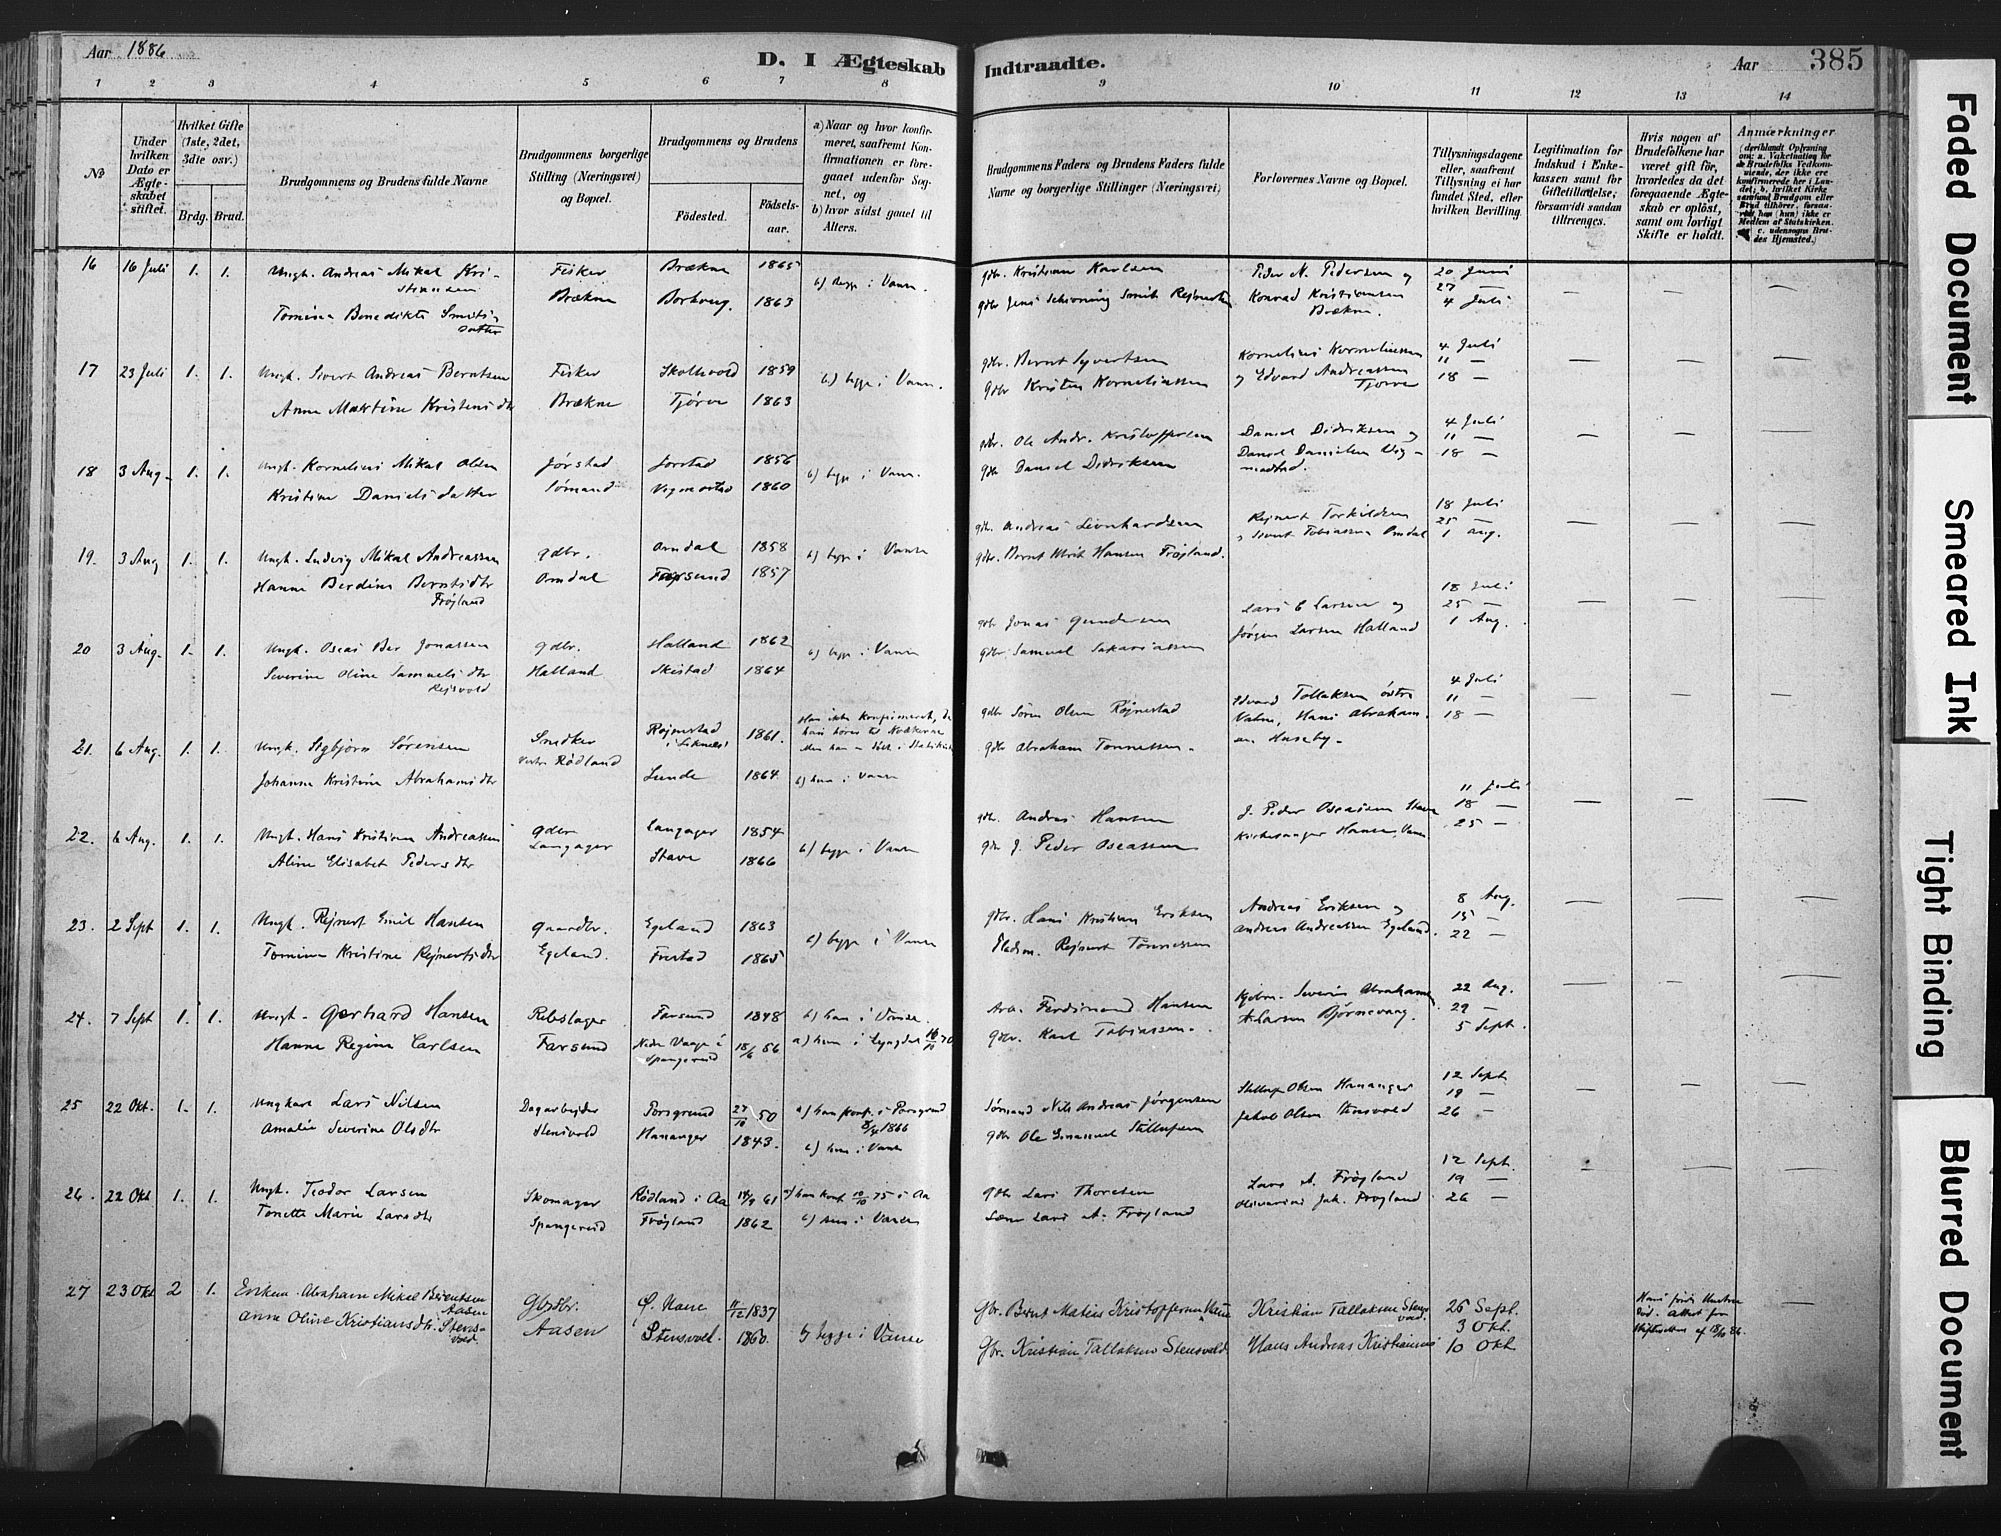 Aar 1886
D. I Ægteskab Indtraadte.
Aar 385
1 2 3 4 5 6 7 8 9 10 11 12 13 14
No
Under hvilken Dato er Ægteskabet stiftet.
Hvilket Gifte (1ste, 2det, 3die osv.)
Brdg. Brud.
Brudgommens og Brudens fulde Navne
Brudgommens borgerlige Stilling (Næringsvei) og Bopæl.
Brudgommens og Brudens
Fødested. Fødselsaar.
a) Naar og hvor konfirmeret, saafremt Konfirmationen er foregaaet udenfor Sognet, og
b) hvor sidst gaaet til Alters.
Brudgommens Faders og Brudens Faders fulde Navne og borgerlige Stillinger (Næringsvei)
Forlovernes Navne og Bopæl.
Tillysningsdagene eller, saafremt Tillysning ei har fundet Sted, efter hvilken Bevilling.
Legitimation for Indskud i Enkekassen samt for Giftetilladelse; forsaavidt saadan tiltrænges.
Hvis nogen af Brudefolkene har været gift før, hvorledes da det foregaaende Ægteskab er opløst, samt om lovligt Skifte er holdt.
Anmærkninger
16 16 Juli 1. 1. Ungk. Andreas Mikal Kristiansen Fisker Brækne 1865 b) begge i Vanse. gdbr. Kristian Karlsen Peder N. Pedersen og 20 Juni
Tomine Benedikte Smitsdatter Brækne Borhaug 1863 gdbr Jens Schivning Smit Konrad Kristiansen Brækne. 27 — 4 Juli
17 23 Juli 1. 1. Ungk. Sivert Andreas Berntsen Fisker Skollevold 1859 b) begge i Vanse. gdbr. Bernt Syvertsen Kornelius Korneliussen 4 Juli
Anne Martine Kristensdtr Brækne Tjørve 1863 gdbr Kristen Korneliussen og Edvard Andreassen Tjørve 11 — 18 —
18 3 Aug. 1. 1. Ungk. Kornelius Mikal Olsen Jørstad Jørstad 1856 b) begge i Vanse. gdbr. Ole Andr. Kristoffersen Daniel Didriksen og 4 Juli
Kristine Danielsdatter Sømand Vigmostad 1860 gdbr Daniel Didriksen Daniel Danielsen Vigmostad. 11 — 18 —
19. 3 Aug 1. 1. Ungk. Ludvig Mikal Andreassen gdbr. Omdal 1858 b) begge i Vanse gdbr. Andreas Leonhardsen Rejnert Torkildsen 18 Juli
Hanne Berdine Berntsdtr Frøjland Omdal Farsund 1857 gdbr. Bernt Ulrik Hansen Frøjland. og Sivert Tobiassen Omdal 25 — 1 Aug.
20 3 Aug. 1. 1. Ungk. Oseas Ber Jonassen gdbr. Halland 1862 b) begge i Vanse gdbr Jonas Gundersen Lars E Larsen og 18 Juli
Severine Oline Samuelsdtr Rejsvold Halland Skeistad 1864 gdbr Samuel Sakariassen Jørgen Larsen Halland 25 — 1 Aug.
21. 6 Aug. 1. 1. Ungk. Sigbjørn Sørensen Snedker Røjnestad i Liknes 1861. Han ikke konfirmeret, da han hører til Kvækerne gdbr Søren Olsen Røjnestad Edvard Tollaksen østre 4 Juli
Johanne Kristine Abrahamsdtr Vestre Rødland Lunde 1864 b) hun i Vanse gdbr Abraham Tønnessen. Vatne, Hans Abrahamsen Huseby. 11 — 18 —
22. 6 Aug. 1. 1. Ungk. Hans Kristian Andreassen gdbr Langager 1854 b) begge i Vanse gdbr. Andreas Hansen J. Peder Oseassen Stave 11 Juli
Aline Elisabet Pedersdtr Langager Stave 1866 gdbr J. Peder Oseassen Kirkesanger Hansen, Vanse 18 — 25 —
23. 2 Sept 1. 1. Ungk. Rejnert Emil Hansen gaardbr. Egeland 1863 b) begge i Vanse gdbr. Hans Kristian Eriksen Andreas Eriksen og 8 Aug.
Tomine Kristine Rejnertsdtr Egeland. Frestad 1865 Pladsm. Rejnert Tønnessen Andreas Andreassen Egeland. 15 — 22 —
24. 7 Sept 1. 1. Ungk. Gerhard Hansen Rebslager Farsund 1848 b) han i Vanse. Arb. Ferdinand Hansen Kjøbm. Severin Abrahamsen 22 Aug.
Hanne Regine Carlsen Farsund Nedre Vaage i Spangereid 18/6 56 a) hun i Lyngdal gdbr. Karl Tobiassen. A. Larsen Bjørnevaag. 29 — 5 Sept.
25 22 Okt. 1. 1. Ungkarl Lars Nilsen Dagarbejder Porsgrund 27/10 50 a) han konf. i Porsgrund 8/4 1866 Sømand Nils Andreas Jørgensen Olsen Hananger 12 Sept
Amalie Severine Olsdtr Stensvold Hananger 1843. b) hun i Vanse gdbr Ole Emanuel Jakob Olsen Stensvold 19 — 26 —
26. 22 Okt 1. 1. Ungk. Teodor Larsen Skomager Rødland i Aa 14/9 61 a) han konf 10/10 75 i Aa gdbr Lars Thoresen Lars A. Frøjland 12 Sept.
Tonette Marie Larsdtr Spangereid Frøjland 1862 b) hun i Vanse Lars A. Frøjland Olivarius Jak. Frøjland 19 — 26 —
27 23 Okt 2 1. Enkem. Abraham Mikal Berentsen Aasen Gbrdbr. Ø. Hauge 11/12 1837 Gbr. Bernt Matias Kristoffersen Kristian Tallaksen Stensvold. 26 Sept.
Anne Oline Kristiansdtr. Stensvold. Aasen Stensvold. 1860. b) begge i Vanse Gbr. Kristian Tallaksen Stensvold Hans Andreas Kristiansen 3 Okt. 10 Okt
Faded Document
Smeared Ink
Tight Binding
Blurred Document